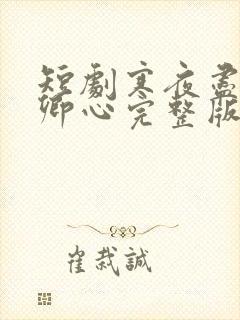 短劇寒夜盡
卿心完整版
崔栽誠